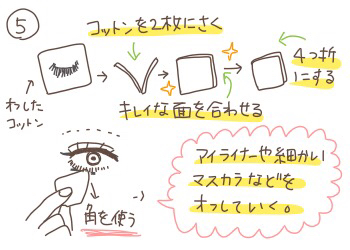 ⑤
コットンを2枚にさく
わしたコットン
4つ折にする
キレイな面を合わせる
角を使う
アイライナーや細かい
マスカラなどを
オフしていく。